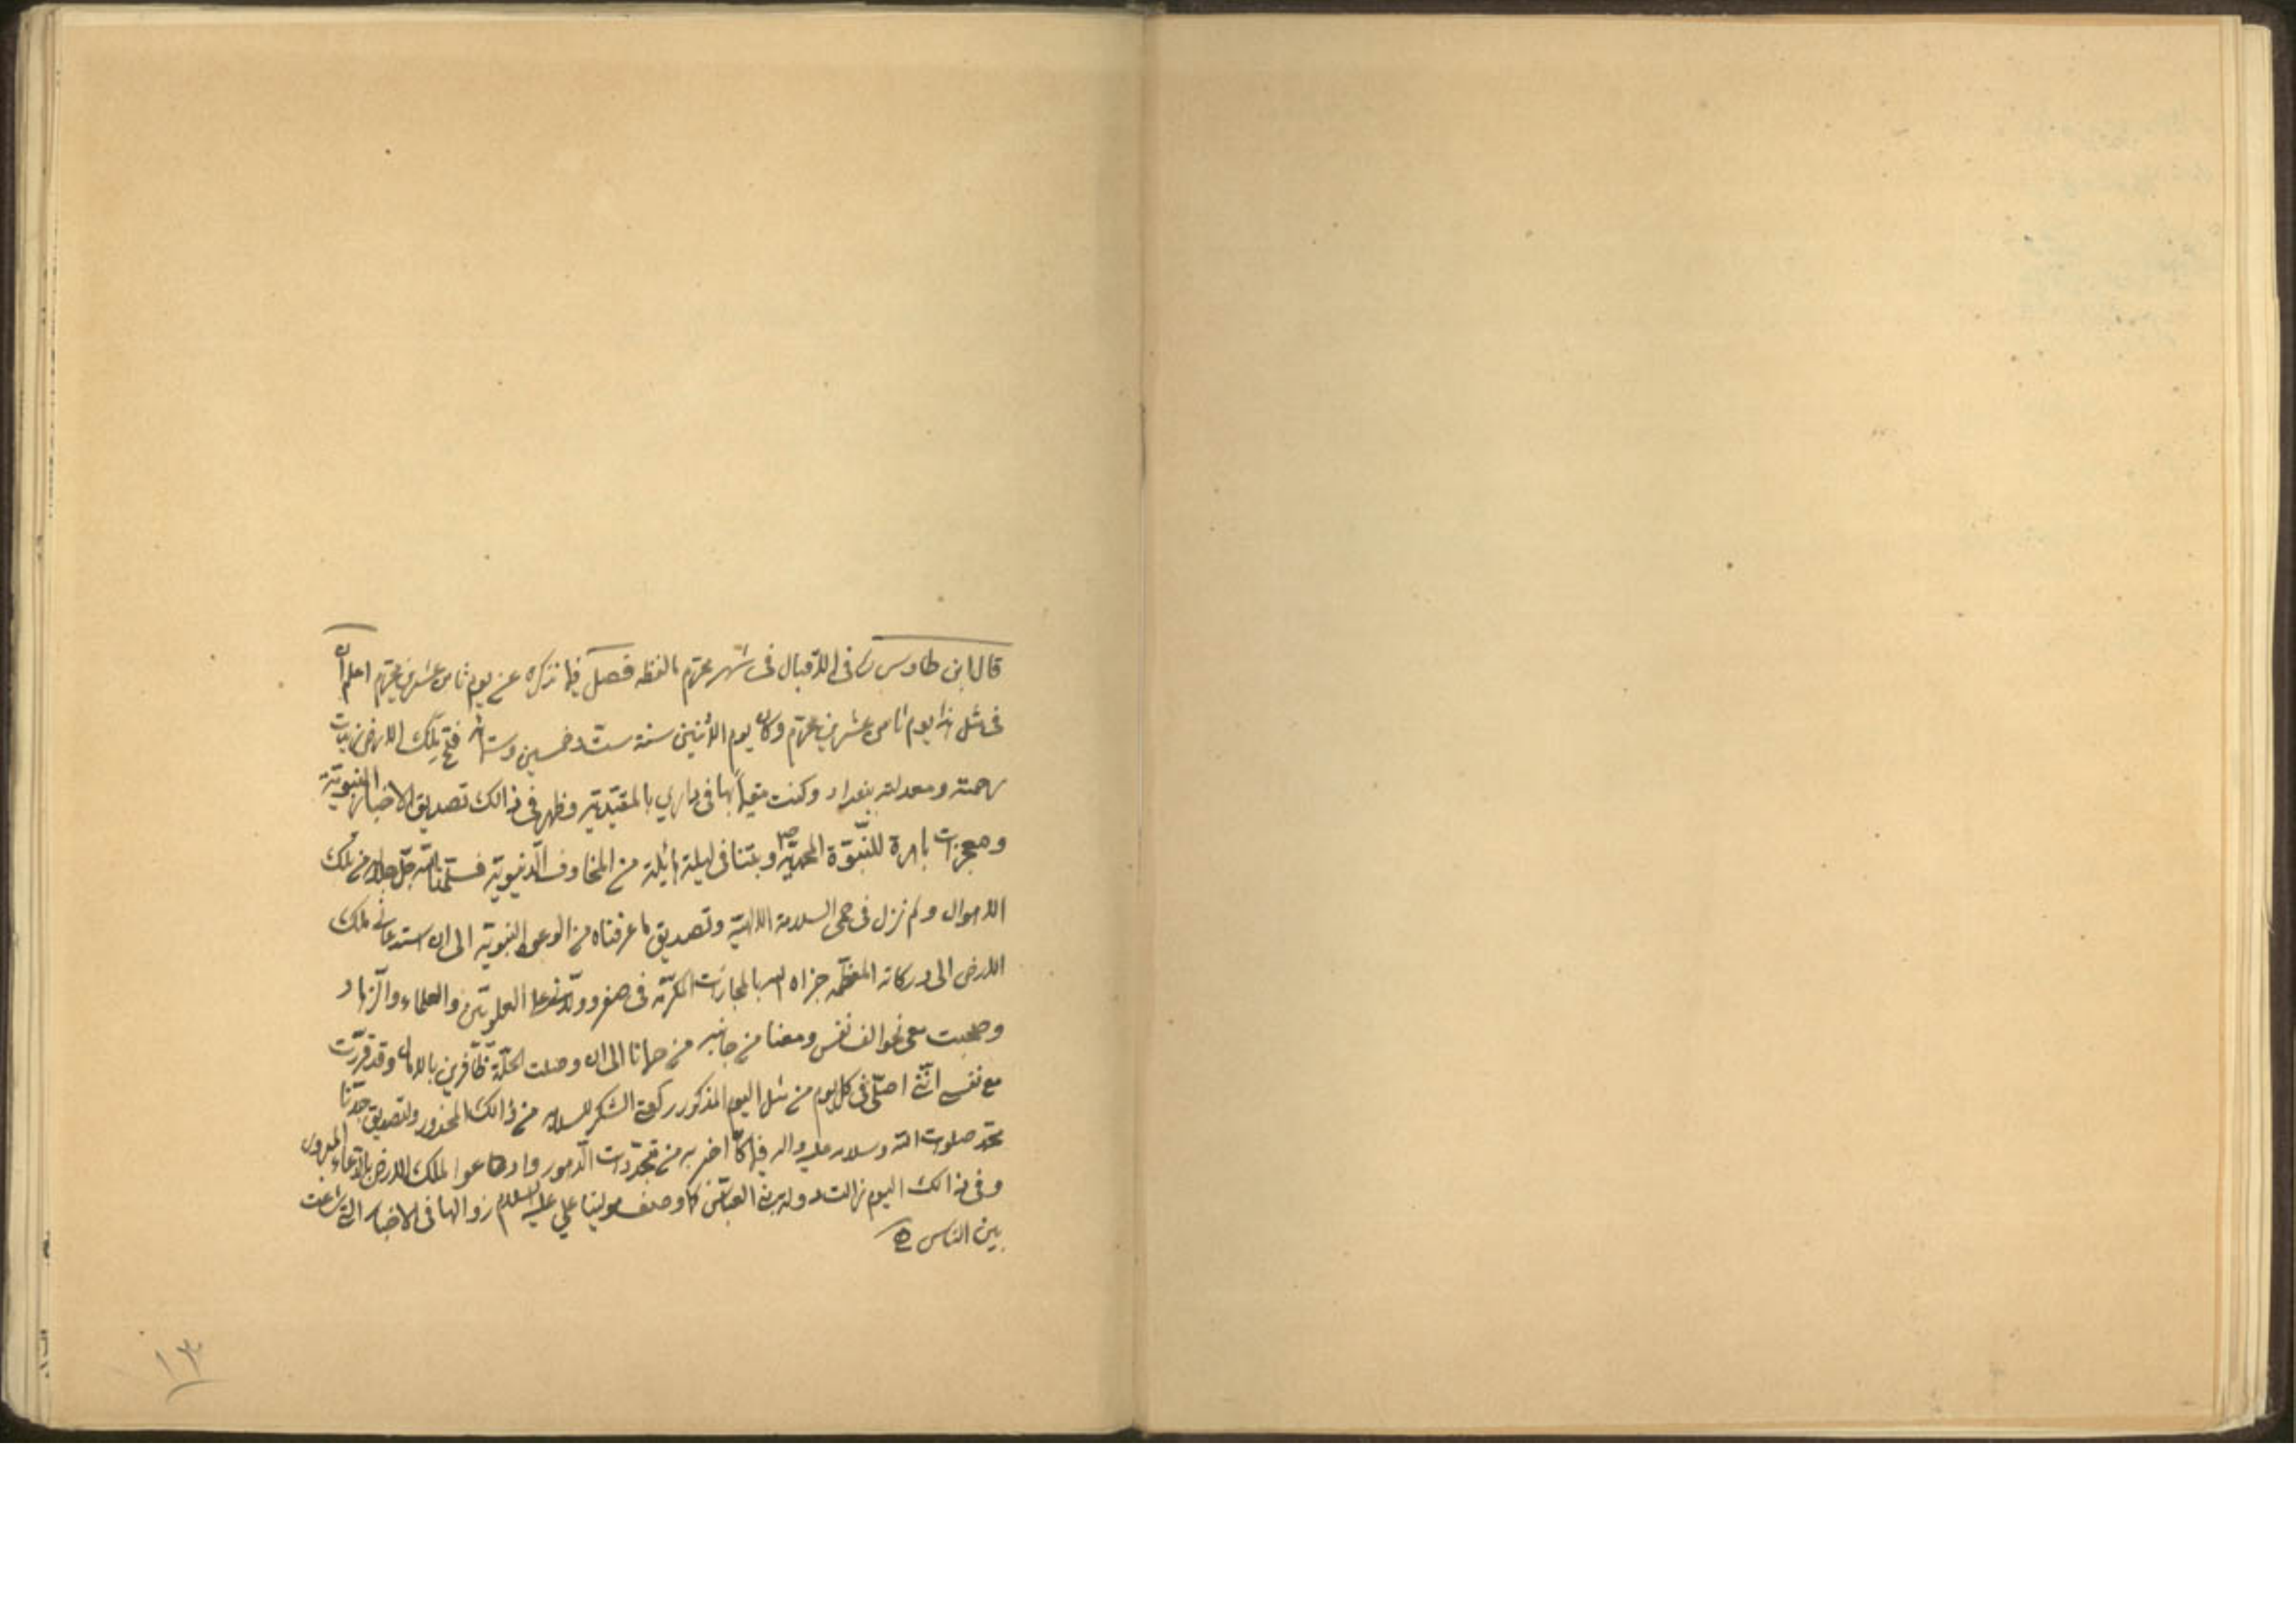 قال ابن طاوس ره فی الاقبال فی شهر محرّم بالفظه فصل فیما نذکره عن یوم ثامن عشرین محرّم اعلم ان
فی مثل هذا یوم ثامن عشرین محرّم وکان یوم الاثنین سنة ستّ وخمسین وستمائه فتح ملک الارض زیدت
رحمته ومعدلته بغداد وکنت مقیماً بها فی داری بالمقتدیّه وظهر فی ذالک تصدیق الاخبار النبویّة
ومعجزات باهرة للنّبوّة المحمدیّة ص وبتنا فی لیلة هائلة من المخاوف الدّنیویّه فسلّمنا اللّه جلّ جلاله من تلک
الاهوال ولم نزل فی حمی السلامة الالهیّه وتصدیق ما عرفناه من الوعود النبویّه الی ان استدعانی ملک
الارض الی درکاته المعظّمه جزاه الله بالمجازات المکرّمه فی صفر وولّانی علی العلویّین والعلماء والزّهاد
وصحبت معی نحو الف نفس ومعنا من جانبه من حمانا الی ان وصلت الحلّة ظافرین بالامال وقد قرّرت
مع نفسی انّنی اصلّی فی کل یوم من مثل الیوم المذکور رکعتی الشکر للسلامه من ذالک المحذور ولتصدیق جدّنا
محمّد صلوات الله وسلامه علیه واله فیما کان اخبر به من متجدّدات الامور وادعوا لملک الارض بالدّعاء المبرور
وفی ذالک الیوم زالت دولة بنی العبّاس کما وصف مولینا علی علیه السلام زوالها فی الاخبار التی شاعت
بین الناس
۱۳